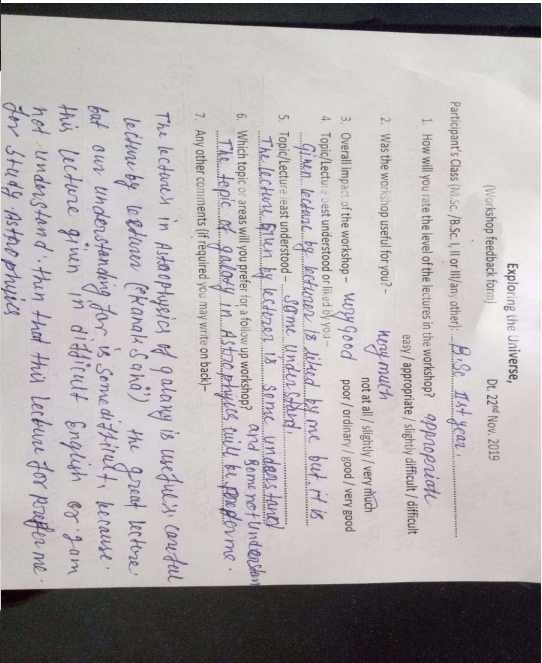 Exploring the Universe,
(Workshop feedback form)
Dt. 22nd Nov. 2019
Participant's Class (M.Sc. /B.Sc. I, II or III/any other): B.Sc. IIst year.
1. How will you rate the level of the lectures in the workshop? appropriate
easy / appropriate / slightly difficult / difficult
2. Was the workshop useful for you? - very much
not at all / slightly / very much
3. Overall impact of the workshop – very good
poor / ordinary / good / very good
4. Topic/Lecture best understood or liked by you –
Given lecture by lecturer is liked by me but it is
some understand.
5. Topic/Lecture least understood –
The lecture given by lecturer is some understand
and some not understan
6. Which topic or areas will you prefer for a follow up workshop?
The topic of galaxy in Astrophysics will be prefer me.
7. Any other comments (if required you may write on back)–
The lectures in Astrophysics galaxy is usefull careful
lecture by lecturer ("Kanak Saha") the great lecture
but our understanding for is some difficult, because.
this lecture given in difficult English or I am
not understand. thin that this lecture for prefer me.
for study Astrophysics